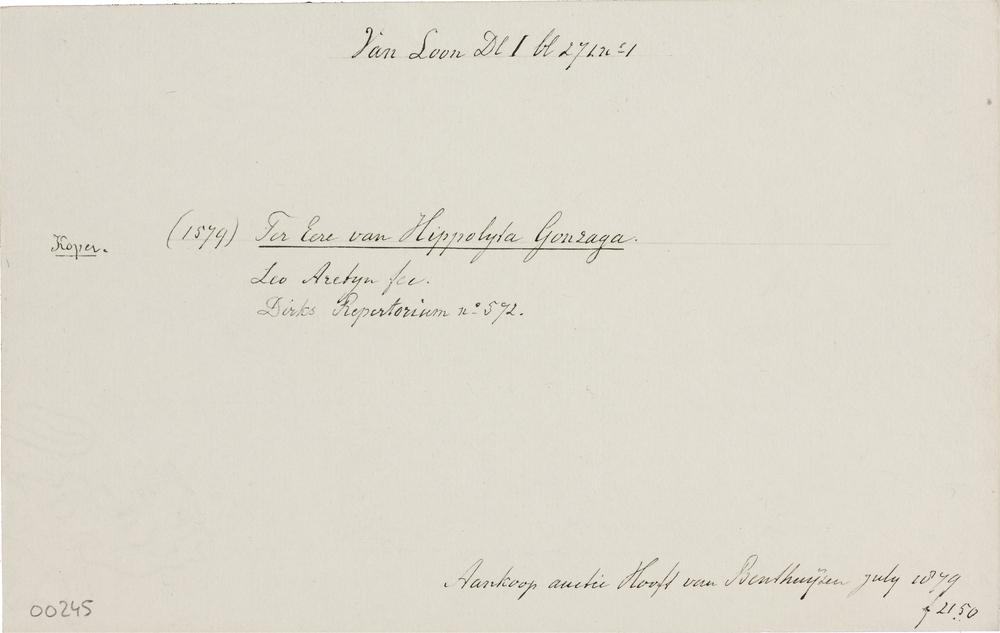 Van Loon Dl I bl 271. nº 1
Koper. (1579) Ter Eere van Hippolyta Gonzaga.
Leo Aretyn fec.
Dirks Repertorium nº 572.
Aankoop auctie Hooft van Benthuijzen july 1879
f 21.50
00245